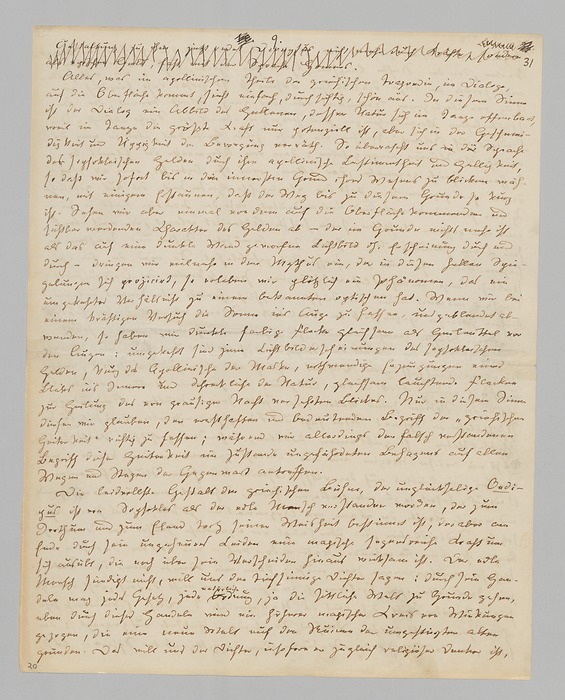 9.
31
Alles, was im apollinischen Theile der griechischen Tragoedie, im Dialoge,
auf die Oberfläche kommt, sieht einfach, durchsichtig, schön aus. In diesem Sinne
ist der Dialog ein Abbild des Hellenen, dessen Natur sich im Tanze offenbart,
weil im Tanze die größte Kraft nur potenziell ist, aber sich in der Geschmei-
digkeit und Üppigkeit der Bewegung verräth. So überrascht uns die Sprache
der sophokleischen Helden durch ihre apollinische Bestimmtheit und Helligkeit,
so daß wir sofort bis in den innersten Grund ihres Wesens zu blicken wäh-
nen, mit einigem Erstaunen, daß der Weg bis zu diesem Grunde so kurz
ist. Sehen wir aber einmal von dem auf die Oberfläche kommenden und
sichtbar werdenden Charakter des Helden ab – der im Grunde nichts mehr ist
als das auf eine dunkle Wand geworfene Lichtbild d. h. Erscheinung durch und
durch – dringen wir vielmehr in den Mythus ein, der in diesen hellen Spie-
gelungen sich projicirt, so erleben wir plötzlich ein Phänomen, das ein
umgekehrtes Verhältniß zu einem bekannten optischen hat. Wenn wir bei
einem kräftigen Versuch die Sonne ins Auge zu fassen, uns geblendet ab-
wenden, so haben wir dunkle farbige Flecken gleichsam als Heilmittel vor
den Augen: umgekehrt sind jene Lichtbilderscheinungen des sophokleischen
Helden, kurz das Apollinische der Maske, nothwendige Erzeugungen eines
Blickes ins Innere und Schreckliche der Natur, gleichsam leuchtende Flecken
zur Heilung des von grausiger Nacht versehrten Blickes. Nur in diesem Sinne
dürfen wir glauben, den ernsthaften und bedeutenden Begriff der „griechischen
Heiterkeit“ richtig zu fassen; während wir allerdings den falsch verstandenen
Begriff dieser Heiterkeit im Zustande ungefährdeten Behagens auf allen
Wegen und Stegen der Gegenwart antreffen.
Die leidvollste Gestalt der griechischen Bühne, der unglückselige Oedi-
pus ist von Sophokles als der edle Mensch verstanden worden, der zum
Irrthum und zum Elend trotz seiner Weisheit bestimmt ist, der aber am
Ende durch sein ungeheures Leiden eine magische segensreiche Kraft um
sich ausübt, die noch über sein Verscheiden hinaus wirksam ist. Der edle
Mensch sündigt nicht, will uns der tiefsinnige Dichter sagen: durch sein Han-
deln mag jedes Gesetz, jede natürliche Ordnung, ja die sittliche Welt zu Grunde gehen,
eben durch dieses Handeln wird ein höherer magischer Kreis von Wirkungen
gezogen, die eine neue Welt auf den Ruinen der umgestürzten alten
gründen. Das will uns der Dichter, insofern er zugleich religiöser Denker ist,
20